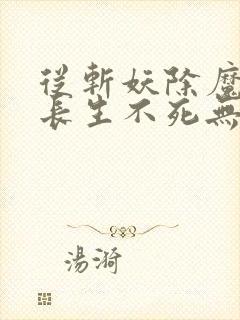 從斬妖除魔
長生不死無
湯漪